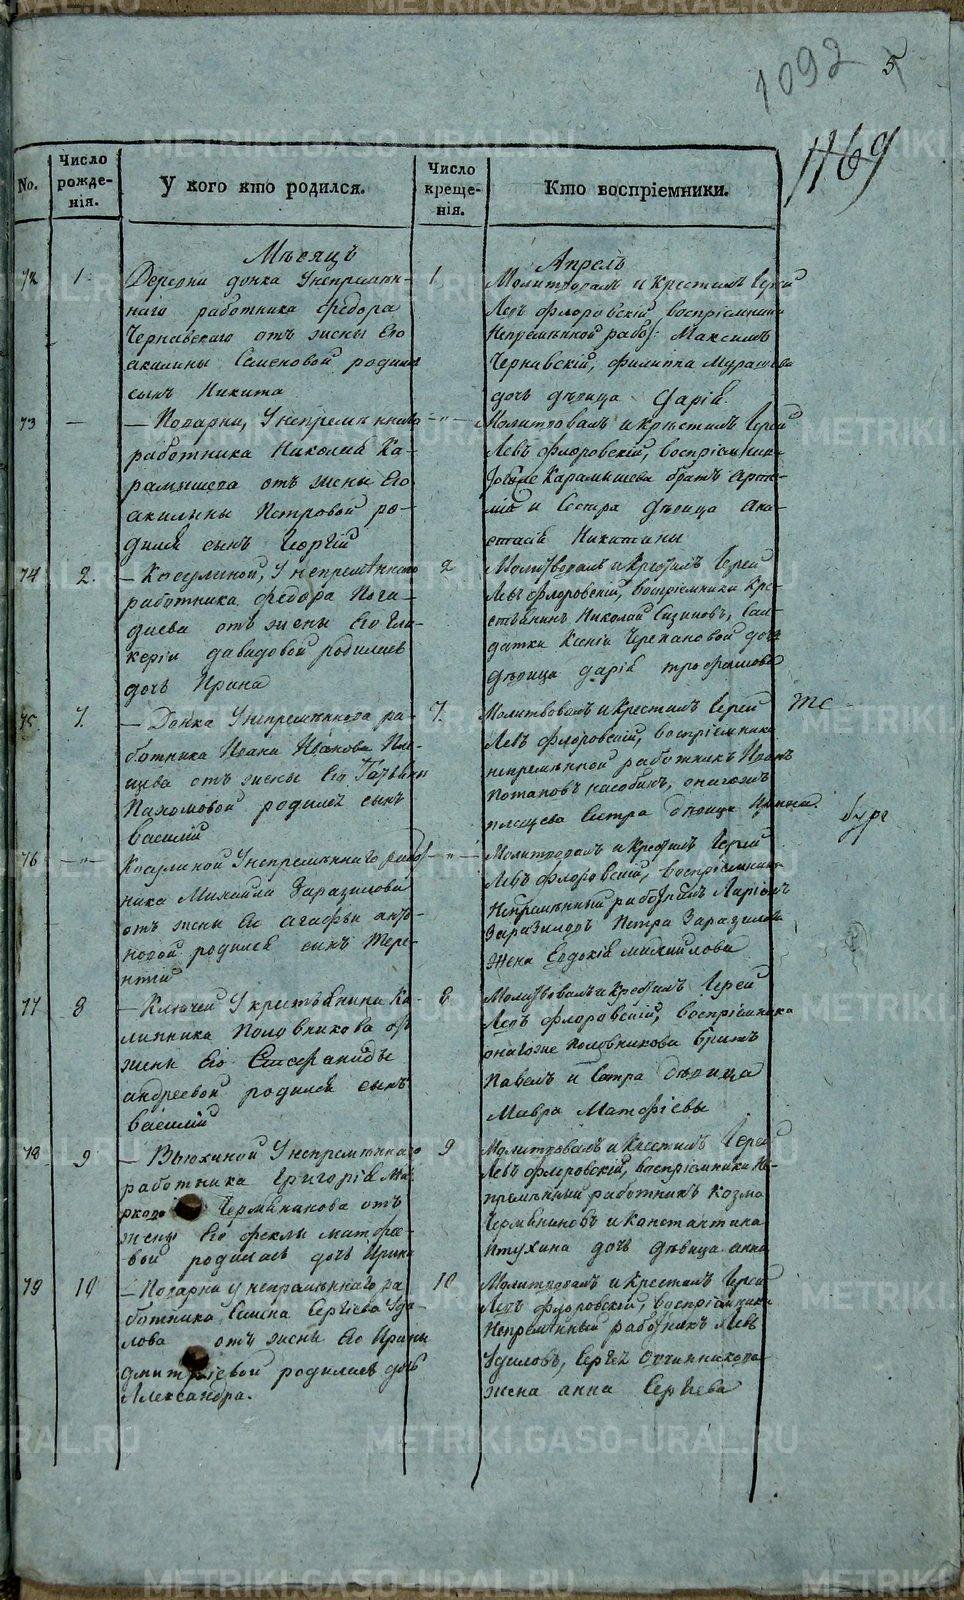 1092 5
1169
No.
Число рожде-нія.
У кого кто родился.
Число креще-нія.
Кто воспріемники.
Мѣсяцъ
Апрель
72 1 1
Деревни донка Унепремѣн-
наго работника Федора
Чернавскаго отъ жены Его
акилины Семеновой родился
сынъ Никита
Молитвовалъ и крестилъ Іерей
Левъ флоровскій воспріемники
Непремѣнной рабо: Максимъ
Чернавскій, филиппа
дочь дѣвица Дарія
73 — — " —
— Походилки
работника Николая Ка-
рамышева отъ жены Его
акилины Петровой ро-
дился сынъ Георгій
Молитвовалъ и крестилъ Іерей
Левъ флоровскій, воспріемники
Карамышева братъ Арте-
мій и Сестра дѣвица Ана-
стасія Никитины
74 2. 2
— Косулиной, У непремѣннаго
работника федора
отъ жены Его Гли-
керіи давыдовой родилась
дочь Ирина
Молитвовалъ и Крестилъ Іерей
Левъ флоровскій, воспріемники Кре-
стьянинъ Николай Сизиковъ, Сол-
датки Ксеніи Черепановой дочь
дѣвица дарія трофимова
75. 7. 7.
— Донка У непремѣннаго ра-
ботника Ивана Иванова Пле-
щева отъ жены Его Татьяны
Пахомовой родился сынъ
Василій
Молитвовалъ и Крестилъ Іерей
Левъ флоровскій, воспріемники
непремѣнной работникъ Иванъ
Потаповъ онагожъ
плещева Сестра дѣвица Ирина.
76 — " — — " —
Косулиной У непремѣннаго рабо
ника Михаила Заразилова
отъ жены Его агафьи анто-
новой родился сынъ Тере-
нтій
Молитвовалъ и Крестилъ Іерей
Левъ флоровскій, воспріемники
Непремѣнный работникъ Ларіонъ
Заразиловъ Петра Заразилова
жена Евдокія михайлова
77 8 8
— Ключей У крестьянина Ка-
линника Половникова отъ
жены Его
андреевой родился сынъ
Василій
Молитвовалъ и Крестилъ Іерей
Левъ флоровскій, воспріемники
онагоже Половникова братъ
Павелъ и Сестра дѣвица
Мавра Матфіевы
78 9 9
— Вьюхиной У непремѣннаго
работника Григорія Ма-
ркова отъ
жены Его феклы матфе-
вой родилась дочь Ирина
Молитвовалъ и Крестилъ Іерей
Левъ флоровскій, воспріемники Не-
премѣнный работникъ Козма
и Константина
птухина дочь дѣвица анна
79 10 10
у непремѣннаго ра-
ботника Семена Сергіева Уди-
лова отъ жены Его Ирины
дмитріевой родилась дочь
Александра.
Молитвовалъ и Крестилъ Іерей
Левъ флоровскій, воспріемники
Непремѣнный работникъ Левъ
Удиловъ, Сергѣя Овчинникова
жена анна Сергіева
METRIKI.GASO-URAL.RU